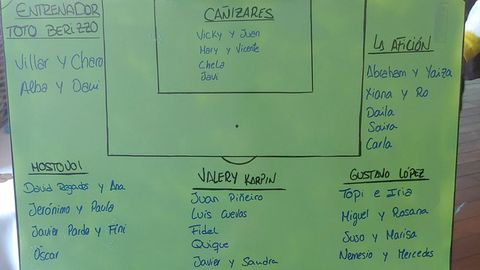 ENTRENADOR
TOTO BERIZZO
Villar y Charo
Alba y Davi
CAÑIZARES
Vicky y Juan
Mary y Vicente
Chela
Javi
LA AFICIÓN
Abraham y Yaiza
Xiana y Ro
Daila
Saira
Carla
MOSTOVOI
David Regades y Ana
Jerónimo y Paula
Javier Pardo y Fini
Óscar
VALERY KARPIN
Juan Piñeiro
Luis Cuervas
Fidel
Quique
Javier y Sandra
GUSTAVO LÓPEZ
Topi e Iria
Miguel y Rosana
Suso y Marisa
Nemesio y Mercedes